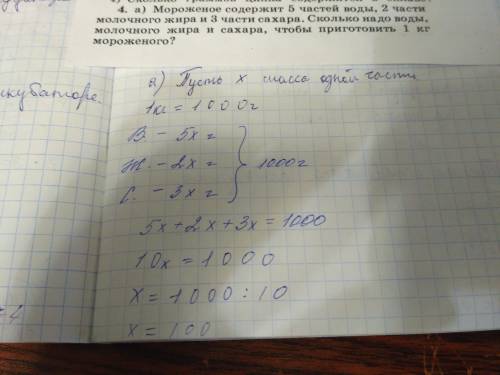 4. а) Мороженое содержит 5 частей воды, 2 части
молочного жира и 3 части сахара. Сколько надо воды,
молочного жира и сахара, чтобы приготовить 1 кг
мороженого?
кубаторе.
а) Пусть х масса одной части
1кг = 1000г
В. – 5х г
Ж. – 2х г } 1000г
С. – 3х г
5х + 2х + 3х = 1000
10х = 1000
х = 1000 : 10
х = 100